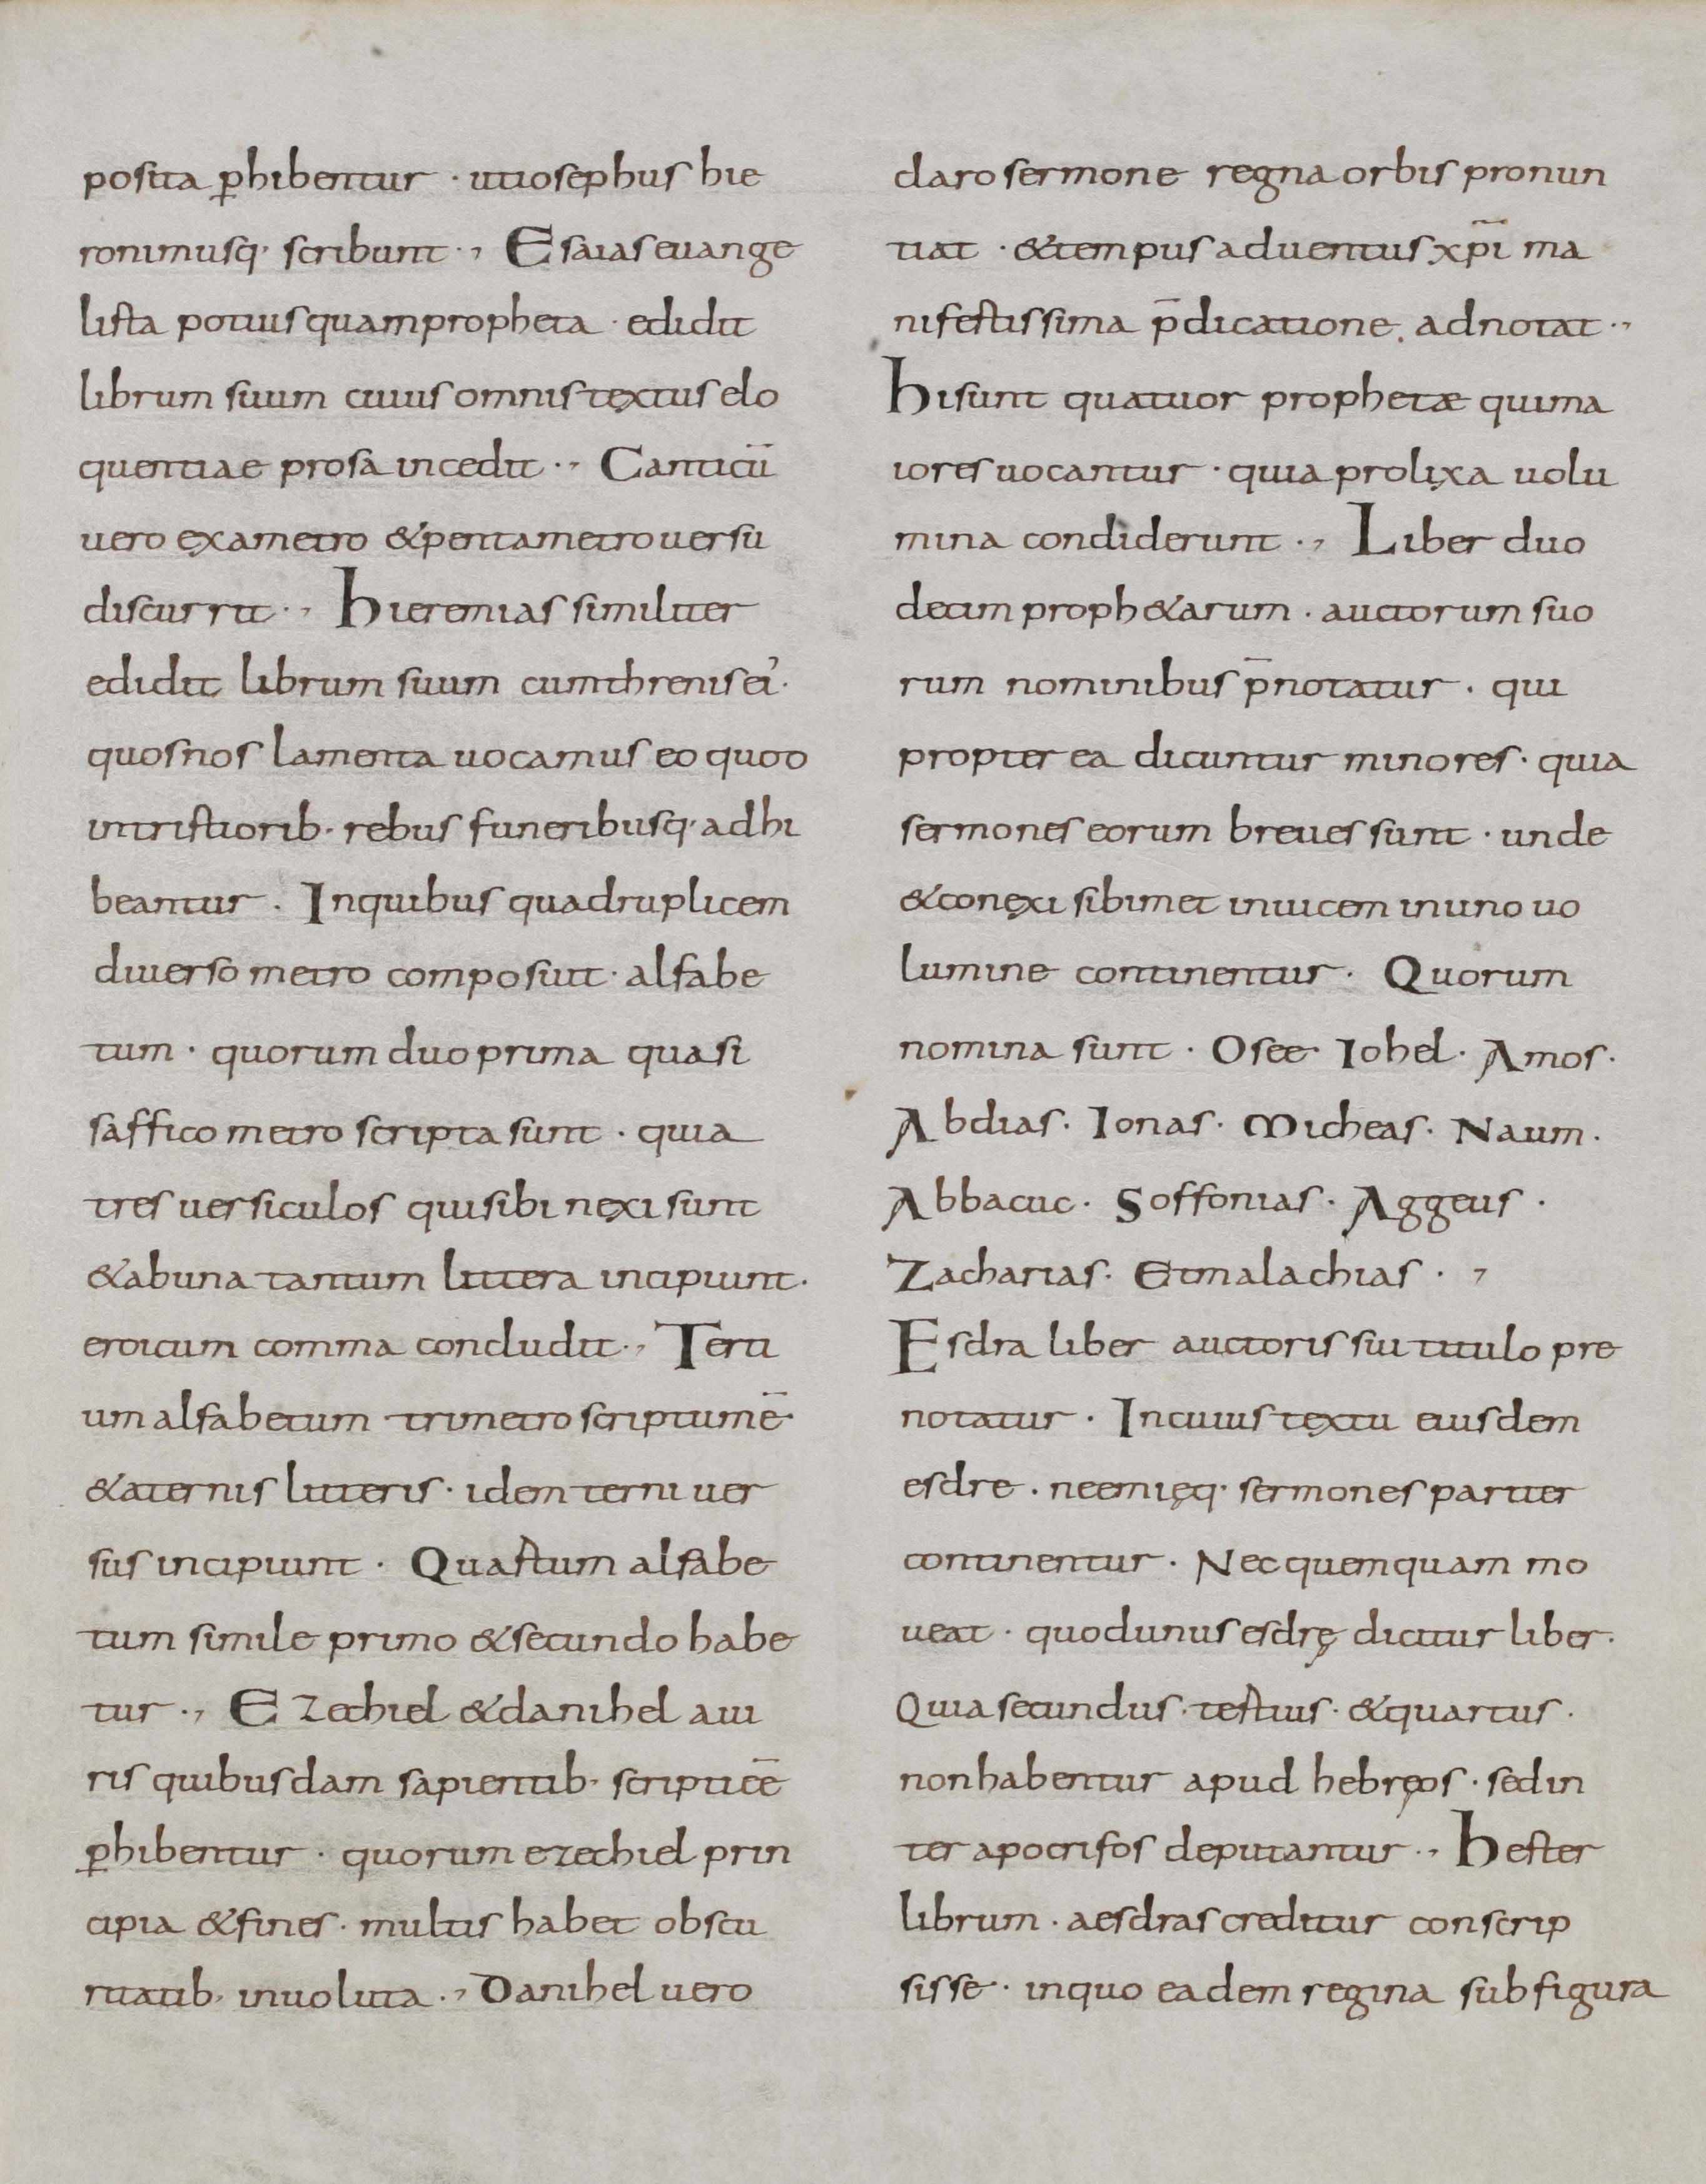 posita p̲hibentur · utiosephus hie
ronimusq· scribunt ·, Esaias euange
lista potius quam propheta · edidit
librum suum cuius omnis textus elo
quentiae prosa incedit ·, Canticū
uero exametro & pentametro uersu
discurrit ·, hieremias similiter
edidit librum suum cum threnis ei᾽·
quos nos lamenta uocamus eo quod
in tristiorib· rebus funeribusq· adhi
beantur . In quibus quadruplicem
diuerso metro composuit · alfabe
tum · quorum duo prima quasi
saffico metro scripta sunt · quia
tres uersiculos qui sibi nexi sunt
& ab una tantum littera incipiunt ·
eroicum comma concludit ·, Terti
um alfabetum trimetro scriptum ē·
& a ternis litteris · idem terni uer
sus incipiunt · Quartum alfabe
tum simile primo & secundo habe
tur ·, Ezechiel & danihel a ui
ris quibusdam sapientib· scripti cē
p̲hibentur · quorum ezechiel prin
cipia & fines · multis habet obscu
ritatib· inuoluta ·, Danihel uero
claro sermone regna orbis pronun
tiat · & tempus aduentus xp̄i ma
nifestissima p̄dicatione . adnotat ·,
hi sunt quatuor prophetæ qui ma
iores uocantur · quia prolixa uolu
mina condiderunt ·, Liber duo
decim proph&arum · auctorum suo
rum nominibus p̄notatur · qui
propter ea dicuntur minores · quia
sermones eorum breues sunt · unde
& conexi sibimet inuicem in uno uo
lumine continentur · Quorum
nomina sunt · Osee · Iohel · Amos ·
Abdias · Ionas · Micheas · Naum ·
Abbacuc · Soffonias · Aggeus ·
Zacharias · Et malachias · ,
Esdra liber auctoris sui titulo pre
notatur · In cuius textu eiusdem
esdre . neemięq· sermones pariter
continentur · Nec quemquam mo
ueat · quod unus esdrę dicitur liber ·
Quia secundus · tertius · & quartus ·
non habentur apud hebręos · sed in
ter apocrifos deputantur ·, hester
librum · aesdras creditur conscrip
sisse · in quo eadem regina sub figura